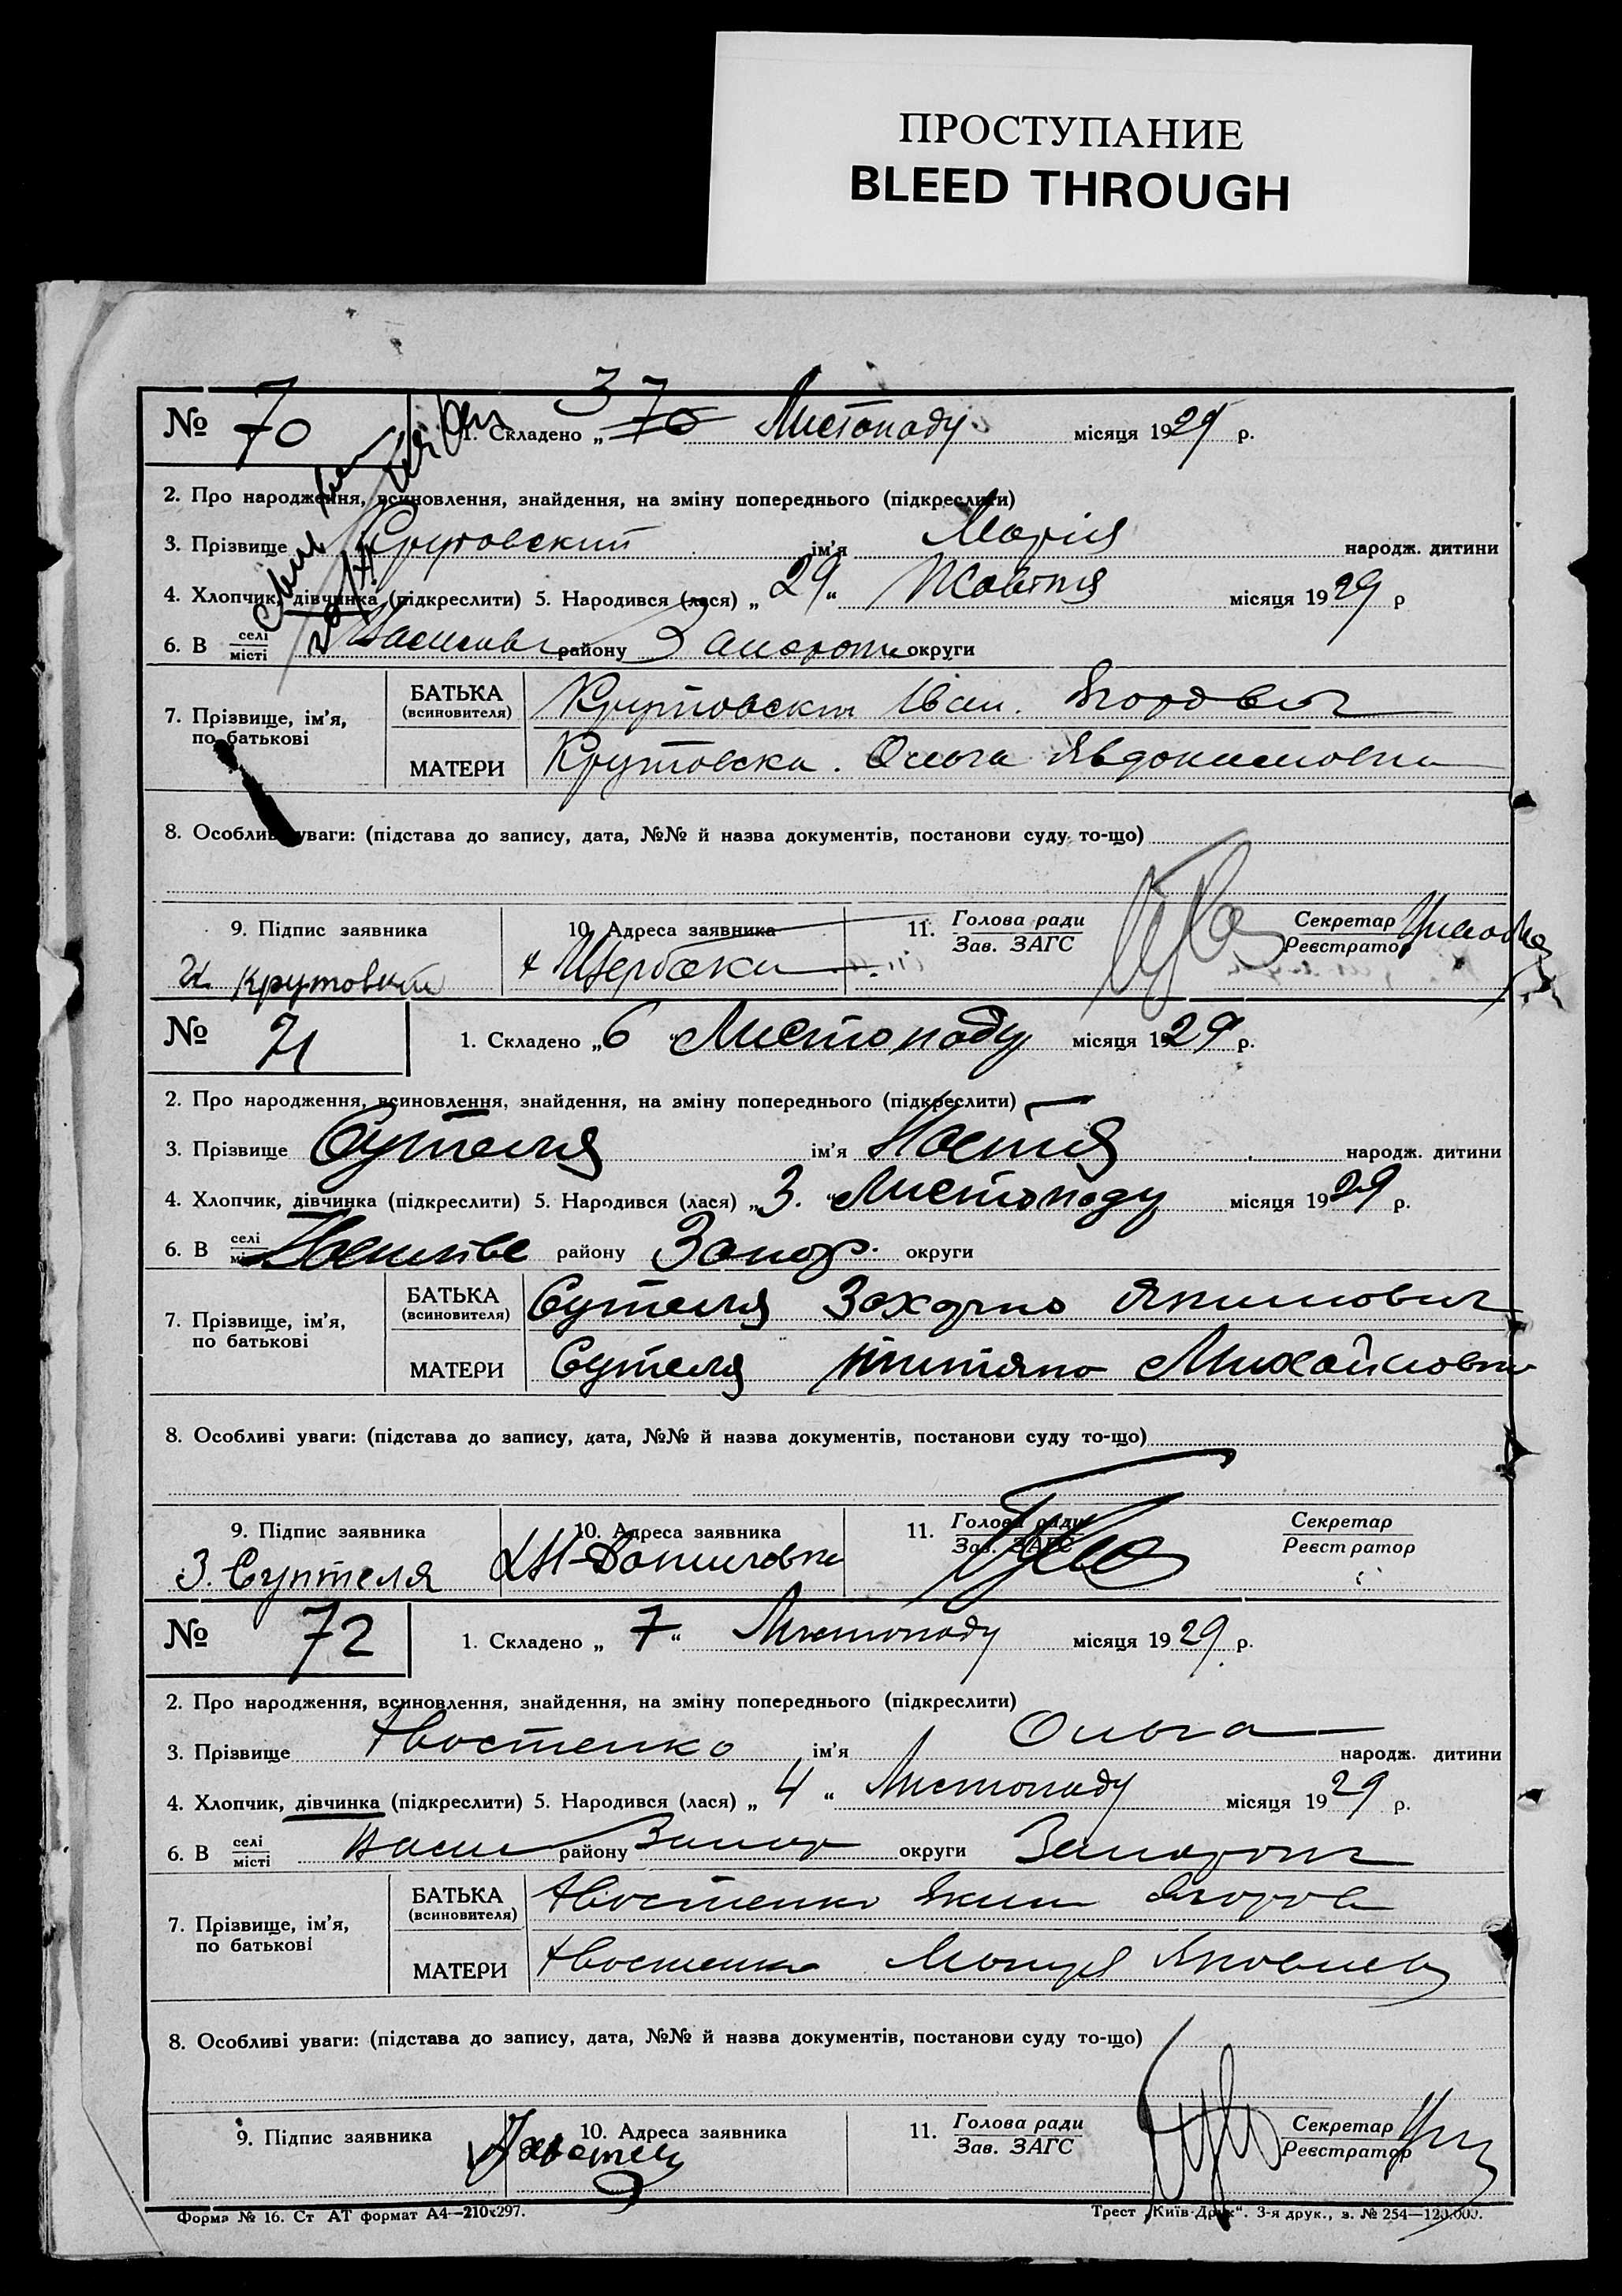 ПРОСТУПАНИЕ
BLEED THROUGH
№ 70
1. Складено „ 3 70 Листопаду місяця 1929 р.
2. Про народження, всиновлення, знайдення, на зміну попереднього (підкреслити)
3. Прізвище Крутовский ім'я Марія народж. дитини
4. Хлопчик, дівчинка (підкреслити) 5. Народився (лася) „ 29 “ Жовтня місяця 1929 р
6. В селі місті району округи
7. Прізвище, ім'я, по батькові
БАТЬКА (всиновителя) Іван
МАТЕРИ Крутовска Ольга Явдокимовна
8. Особливі уваги: (підстава до запису, дата, №№ й назва документів, постанови суду то-що)
9. Підпис заявника
10. Адреса заявника
11. Голова ради Зав. ЗАГС
Секретар Реєстратор
И Крутовкий
Х Щербаки
№ 71
1. Складено „ 6 “ Листопаду місяця 1929 р.
2. Про народження, всиновлення, знайдення, на зміну попереднього (підкреслити)
3. Прізвище Сутеля ім'я Настя народж. дитини
4. Хлопчик, дівчинка (підкреслити) 5. Народився (лася) „ 3. “ Листопаду місяця 1929 р.
6. В селі району Запор. округи
7. Прізвище, ім'я, по батькові
БАТЬКА (всиновителя) Сутеля Якимович
МАТЕРИ Сутеля Михайловна
8. Особливі уваги: (підстава до запису, дата, №№ й назва документів, постанови суду то-що)
9. Підпис заявника
10. Адреса заявника
11. Голова ради Зав. ЗАГС
Секретар Реєстратор
З. Суптеля
№ 72
1. Складено „ 7 “ Листопаду місяця 1929 р.
2. Про народження, всиновлення, знайдення, на зміну попереднього (підкреслити)
3. Прізвище Хвостенко ім'я Ольга народж. дитини
4. Хлопчик, дівчинка (підкреслити) 5. Народився (лася) „ 4 “ Листопаду місяця 1929 р.
6. В селі місті Васил району Запор округи
7. Прізвище, ім'я, по батькові
БАТЬКА (всиновителя) Хвостенко Яким
МАТЕРИ Хвостенко
8. Особливі уваги: (підстава до запису, дата, №№ й назва документів, постанови суду то-що)
9. Підпис заявника
10. Адреса заявника
11. Голова ради Зав. ЗАГС
Секретар Реєстратор
Форма № 16. Ст АТ формат А4—210х297.
Трест „Київ-Друк“. 3-я друк., з. № 254—120.000.